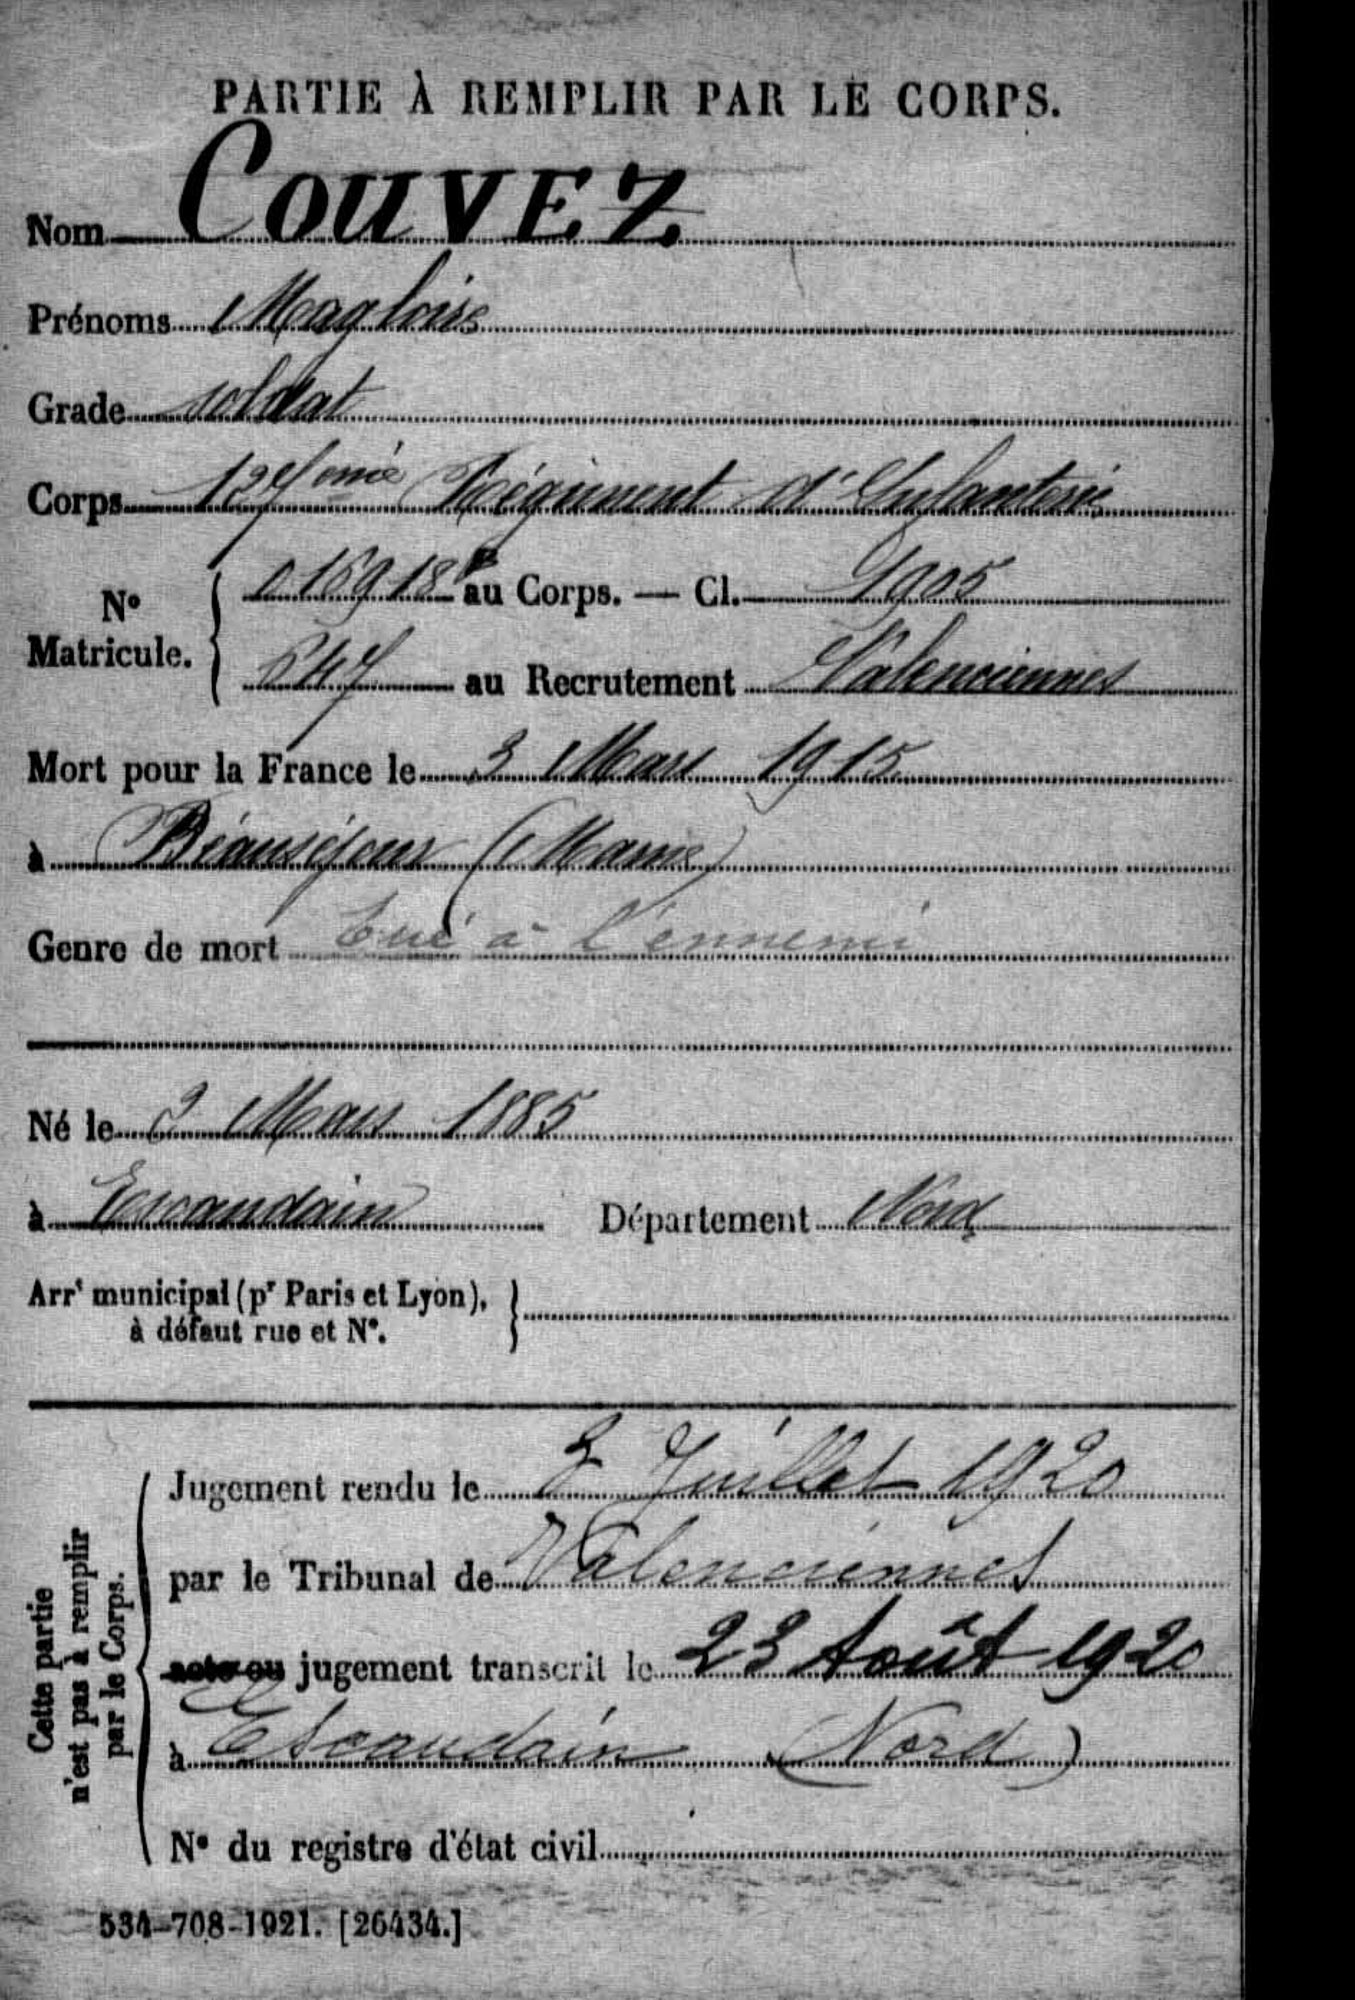 PARTIE À REMPLIR PAR LE CORPS.
Nom COUVEZ
Prénoms Magloire
Grade soldat
Corps 127ème Régiment d'Infanterie
N° Matricule. { 016918 au Corps. — Cl. 1905
647 au Recrutement Valenciennes
Mort pour la France le 3 Mars 1915
à Beauséjour (Marne)
Genre de mort tué à l'ennemi
Né le 2 Mars 1885
à Escaudain Département Nord
Arrt municipal (pr Paris et Lyon), }
à défaut rue et N°.
Cette partie n'est pas à remplir par le Corps.
Jugement rendu le 3 Juillet 1920
par le Tribunal de Valenciennes
acte ou jugement transcrit le 23 Août 1920
à Escaudain (Nord)
N° du registre d'état civil
534-708-1921. [26434.]